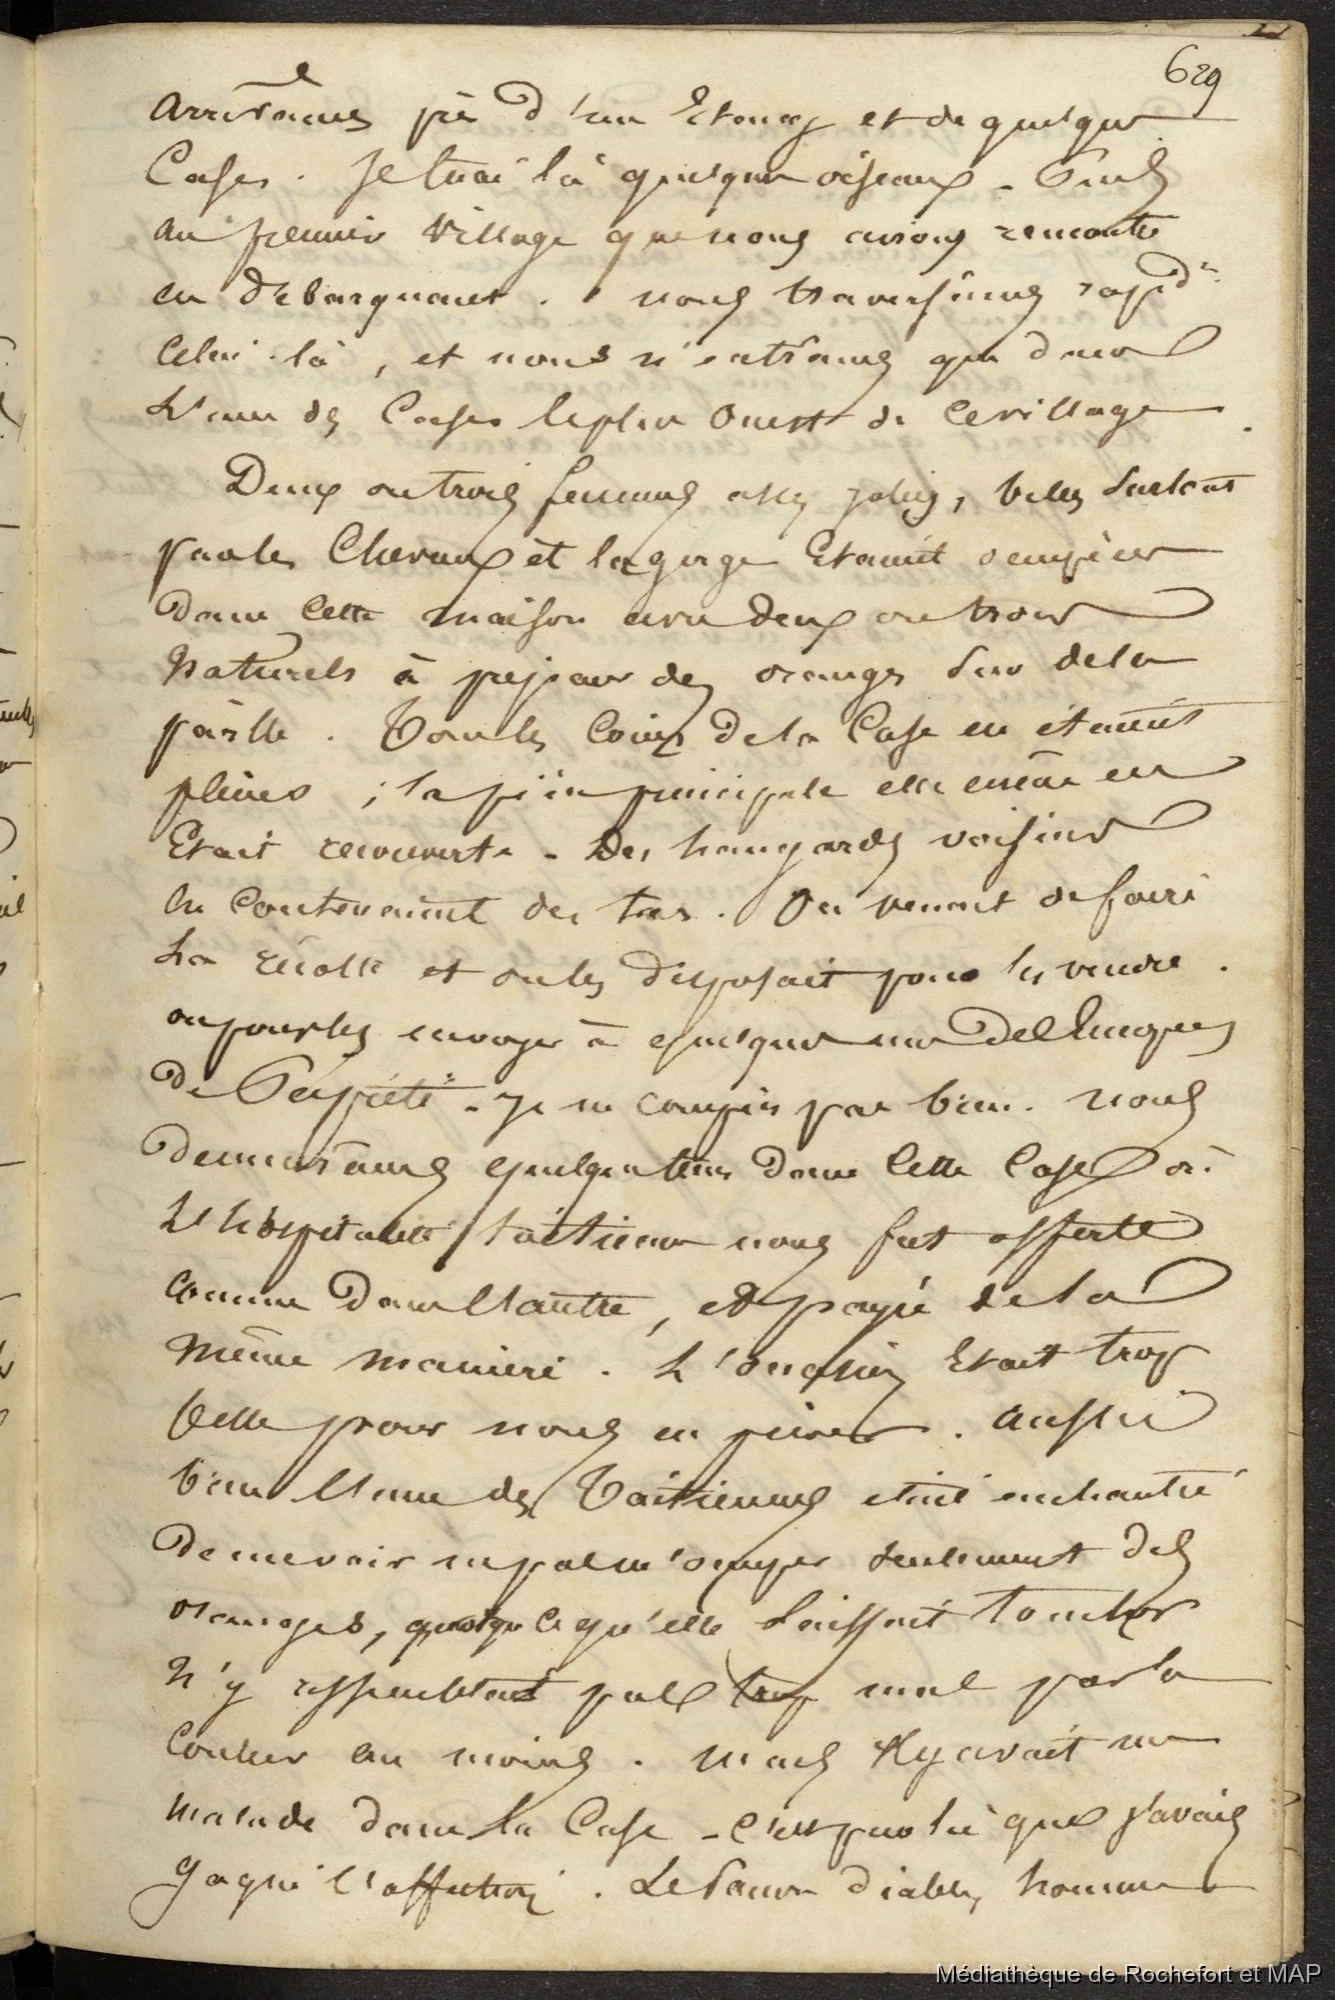 629
arrivâmes près d'un Etang et de quelques
Cases. Je tuai là quelques oiseaux. Puis
au premier village que nous avions rencontré
en débarquant. nous traversâmes rapidt
celui-là, et nous n'entrâmes que dans
L'une des Cases le plus Ouest de ce village
Deux ou trois femmes assez jolies, belles surtout
par les Cheveux et la gorge Etaient occupées
dans cette maison avec deux ou trois
naturels à préparer des oranges sur de la
paille. Tous les Coins de la Case en étaient
pleins ; la pièce principale elle même en
Etait recouverte. Des hangards voisins
en Contenaient des tas. On venait de faire
La récolte et on les disposait pour les vendre.
ou pour les envoyer à quelques uns
de Papeïti. Je ne compris pas bien. Nous
demeurâmes quelque tems dans cette Case où
L'hospitalité taïtienne nous fut offerte
comme dans l'autre, et payée de la
même manière. L'occasion Etait trop
belle pour nous en priver. Aussi
bien l'une des Taïtiennes était enchantée
de me voir ne pas m'occuper seulement des
oranges, quoique ce qu'elle laissait tomber
n'y ressemblait pas trop mal par la
couleur au moins. Mais il y avait un
malade dans la Case - c'est par là que j'avais
gagné l'affection. Le pauvre diable, homme
Médiathèque de Rochefort et MAP